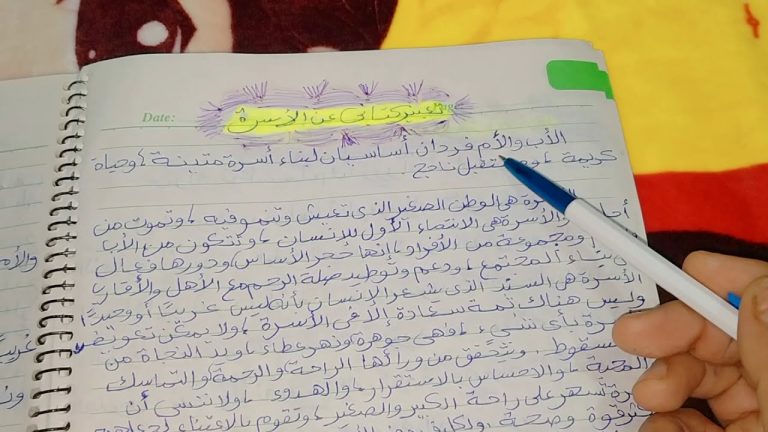 Date:
تعبير كتابي عن الأسرة
الأب والأم فردان أساسيان لبناء أسرة متينة، وحياة
كريمة، ومستقبل ناجح.
الأسرة هي الوطن الصغير الذي تعيش وتنمو فيه، وتموت من
والأسرة هي الانتماء الأول للإنسان، وتتكون من الأب
ومجموعة من الأفراد، إنها حجر الأساس ودورها فعال
بناء المجتمع، ودعم وتوطيد صلة الرحم مع الأهل والأقارب
الأسرة هي السند الذي يشعر الإنسان بأنه ليس غريبًا أو وحيدًا
وليس هناك ثمة سعادة إلا في الأسرة، ولا يمكن تعويض
بأي شيء، فهي جوهرة ونهر عطاء، ويد النجاة من
السقوط. وتتحقق من ورائها الراحة والرحمة والتماسك
المحبة، والاحساس بالاستقرار، والهدوء، ولا ننسى أن
تسهر على راحة الكبير والصغير، وتقوم بالاعتناء
قوة وصحة